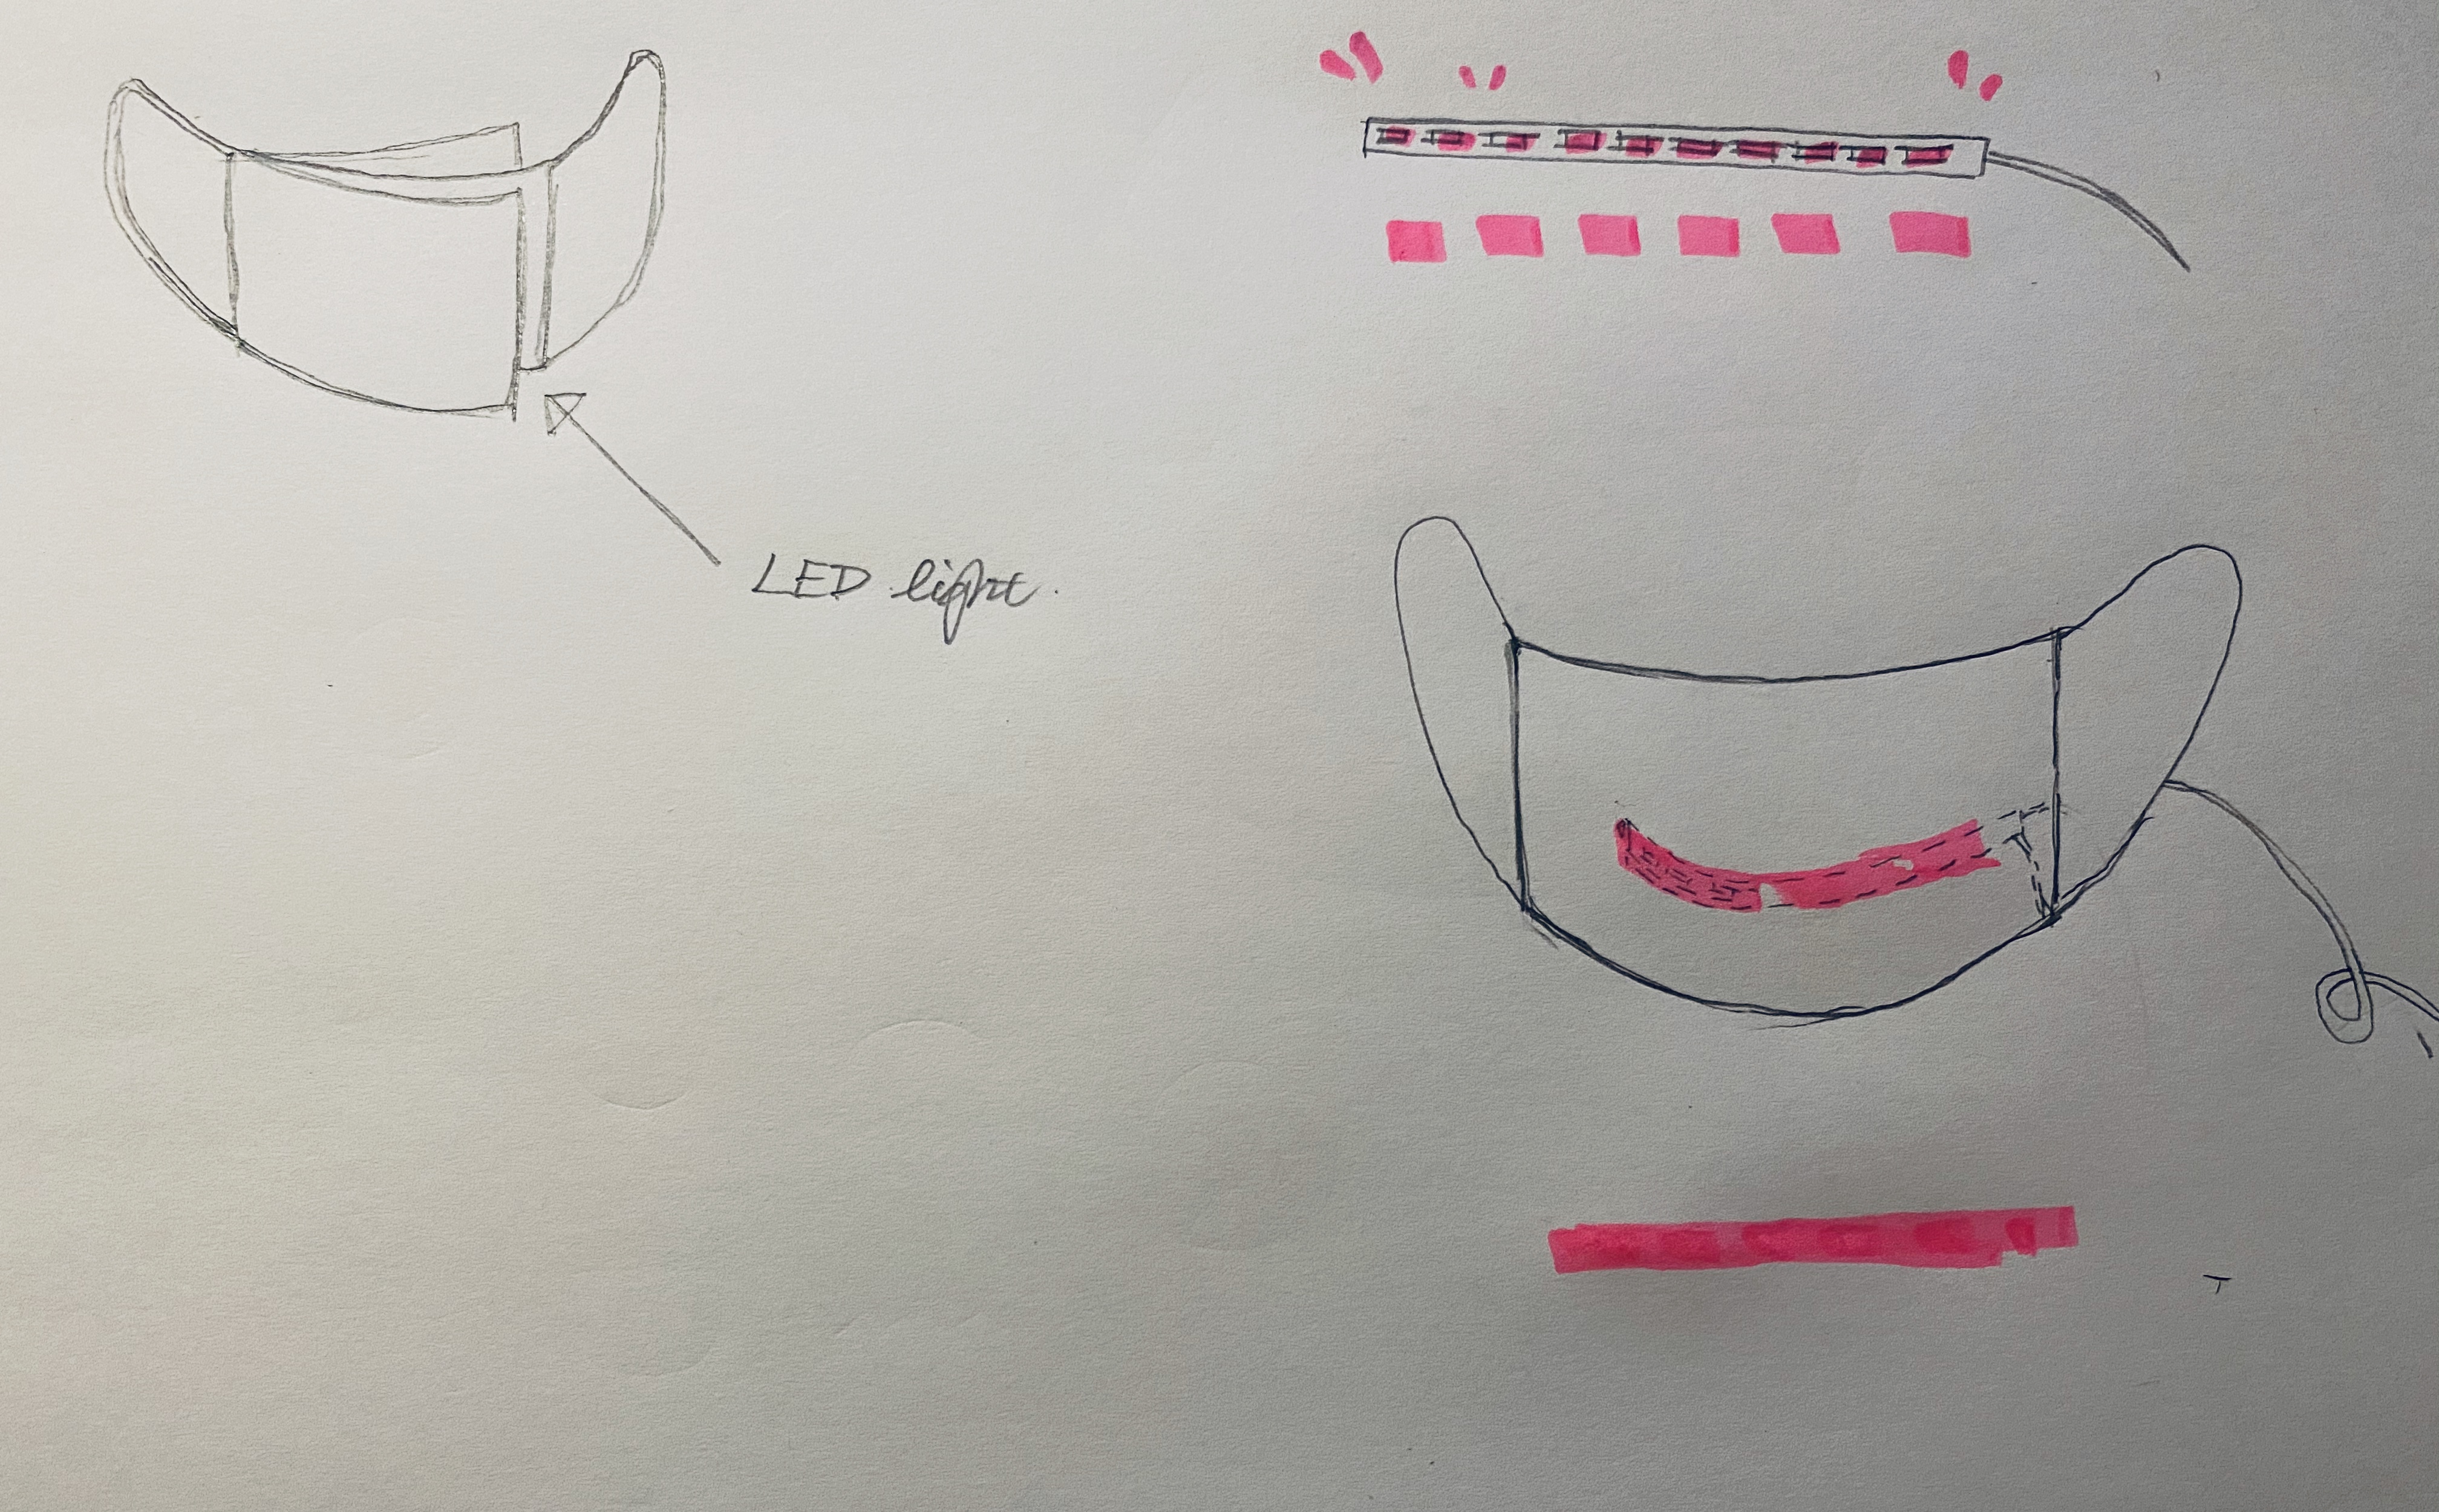 LED light.